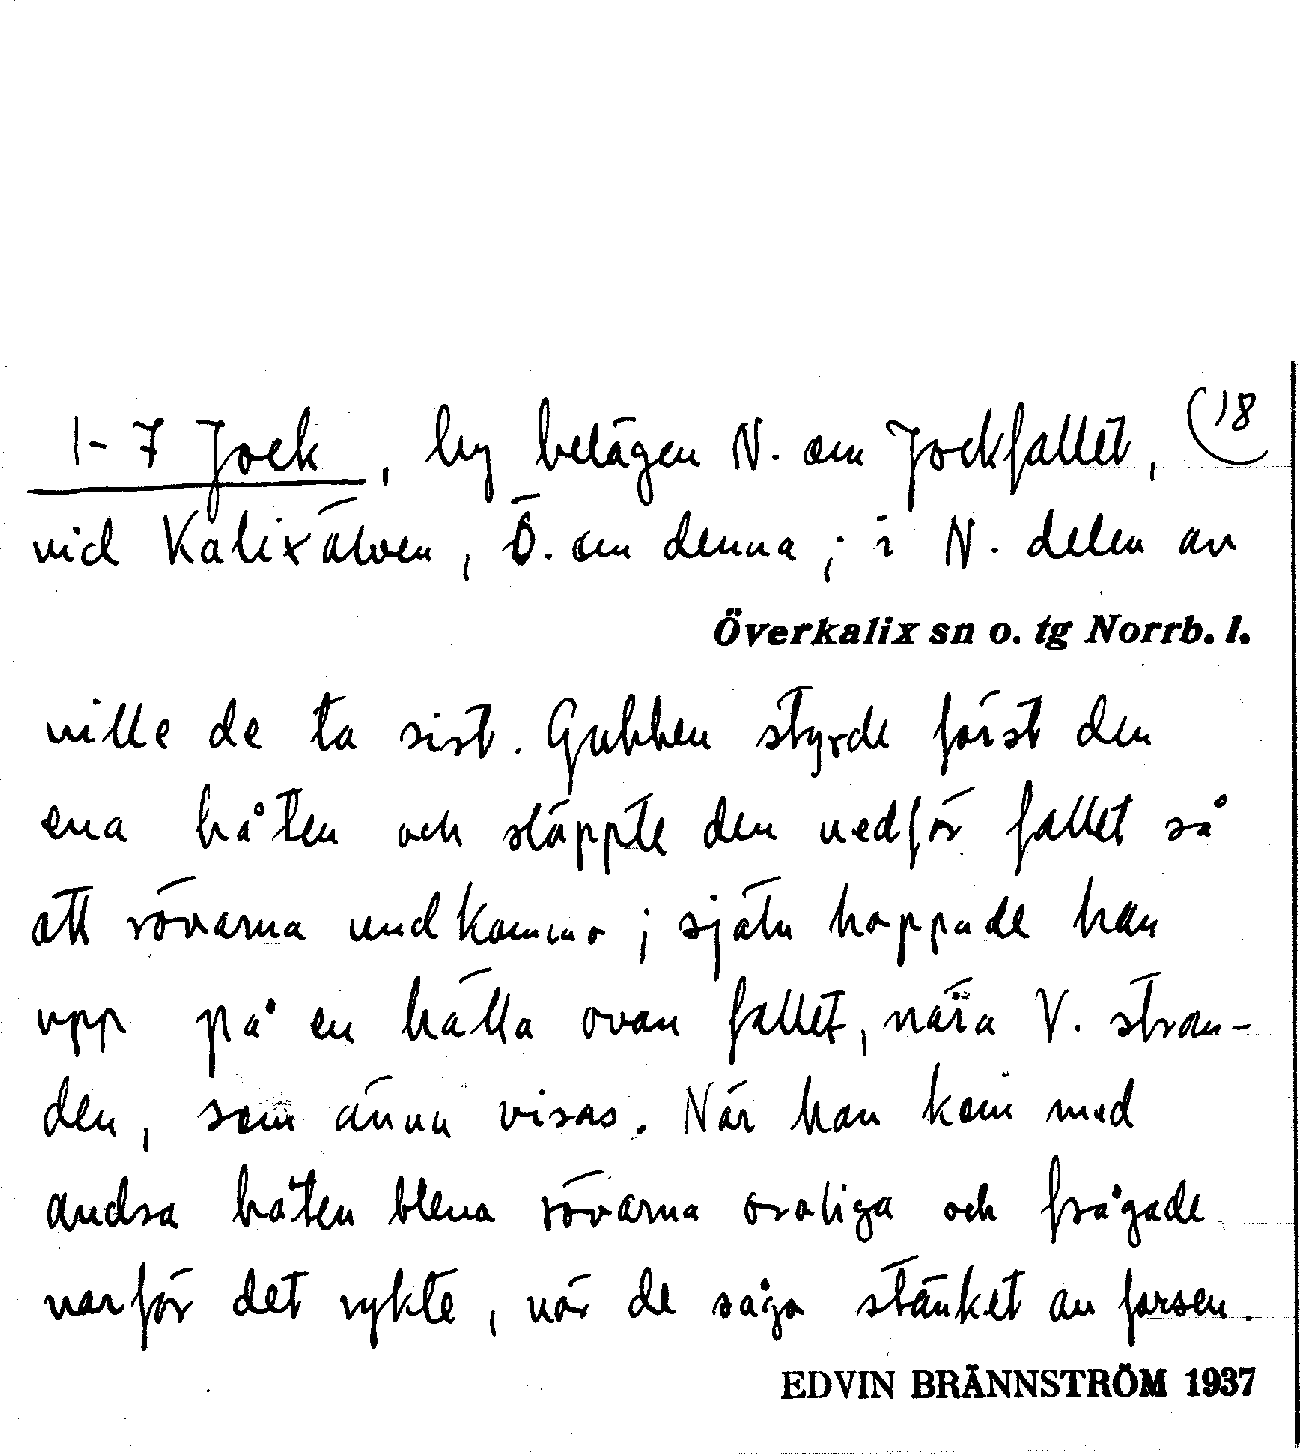 1-7 Jock, by belägen N. om Jockfallet, (18
vid Kalixälven, Ö. om denna; i N. delen av
Överkalix sn o. tg Norrb. l.
ville de ta sist. Gubben styrde först den
ena båten och släppte den nedför fallet så
att rövarna undkommo; själv hoppade han
upp på en hälla ovan fallet, nära V. stran-
den, som ännu visas. När han kom med
andra båten bleva rövarna oroliga och frågade
varför det rykte, när de sågo stänket av forsen.
EDVIN BRÄNNSTRÖM 1937